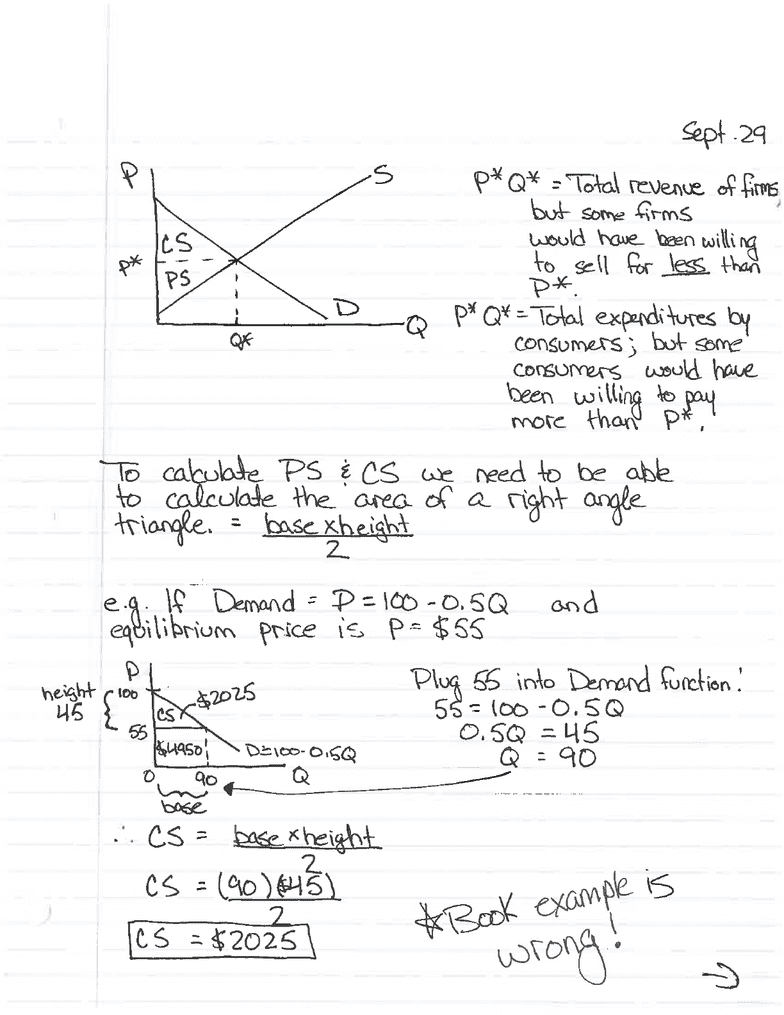 Sept. 29
P
S
CS
P*
PS
D
Q
Q*
P*Q* = Total revenue of firms
but some firms
would have been willing
to sell for less than
P*.
P*Q* = Total expenditures by
consumers; but some
consumers would have
been willing to pay
more than P*.
To calculate PS & CS we need to be able
to calculate the area of a right angle
triangle. = base x height
2
e.g. If Demand = P = 100 - 0.5Q and
equilibrium price is P = $55
P
height
45
100
CS
$2025
55
$4950
D=100-0.5Q
0
90
Q
base
Plug 55 into Demand function:
55 = 100 - 0.5Q
0.5Q = 45
Q = 90
∴ CS = base x height
2
CS = (90)(45)
2
CS = $2025
*Book example is
wrong!
→